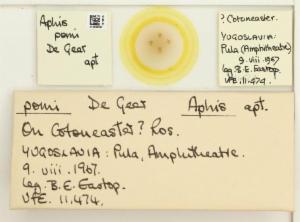 Aphis
pomi
De Geer
apt
? Cotoneaster.
YUGOSLAVIA:
Pula (Amphitheatre)
9. viii. 1967
leg. B.E. Eastop.
VFE. 11.474.
pomi De Geer Aphis apt.
On Cotoneaster? Ros.
YUGOSLAVIA: Pula, Amphitheatre.
9. viii. 1967.
leg. B.E. Eastop.
VFE. 11.474.